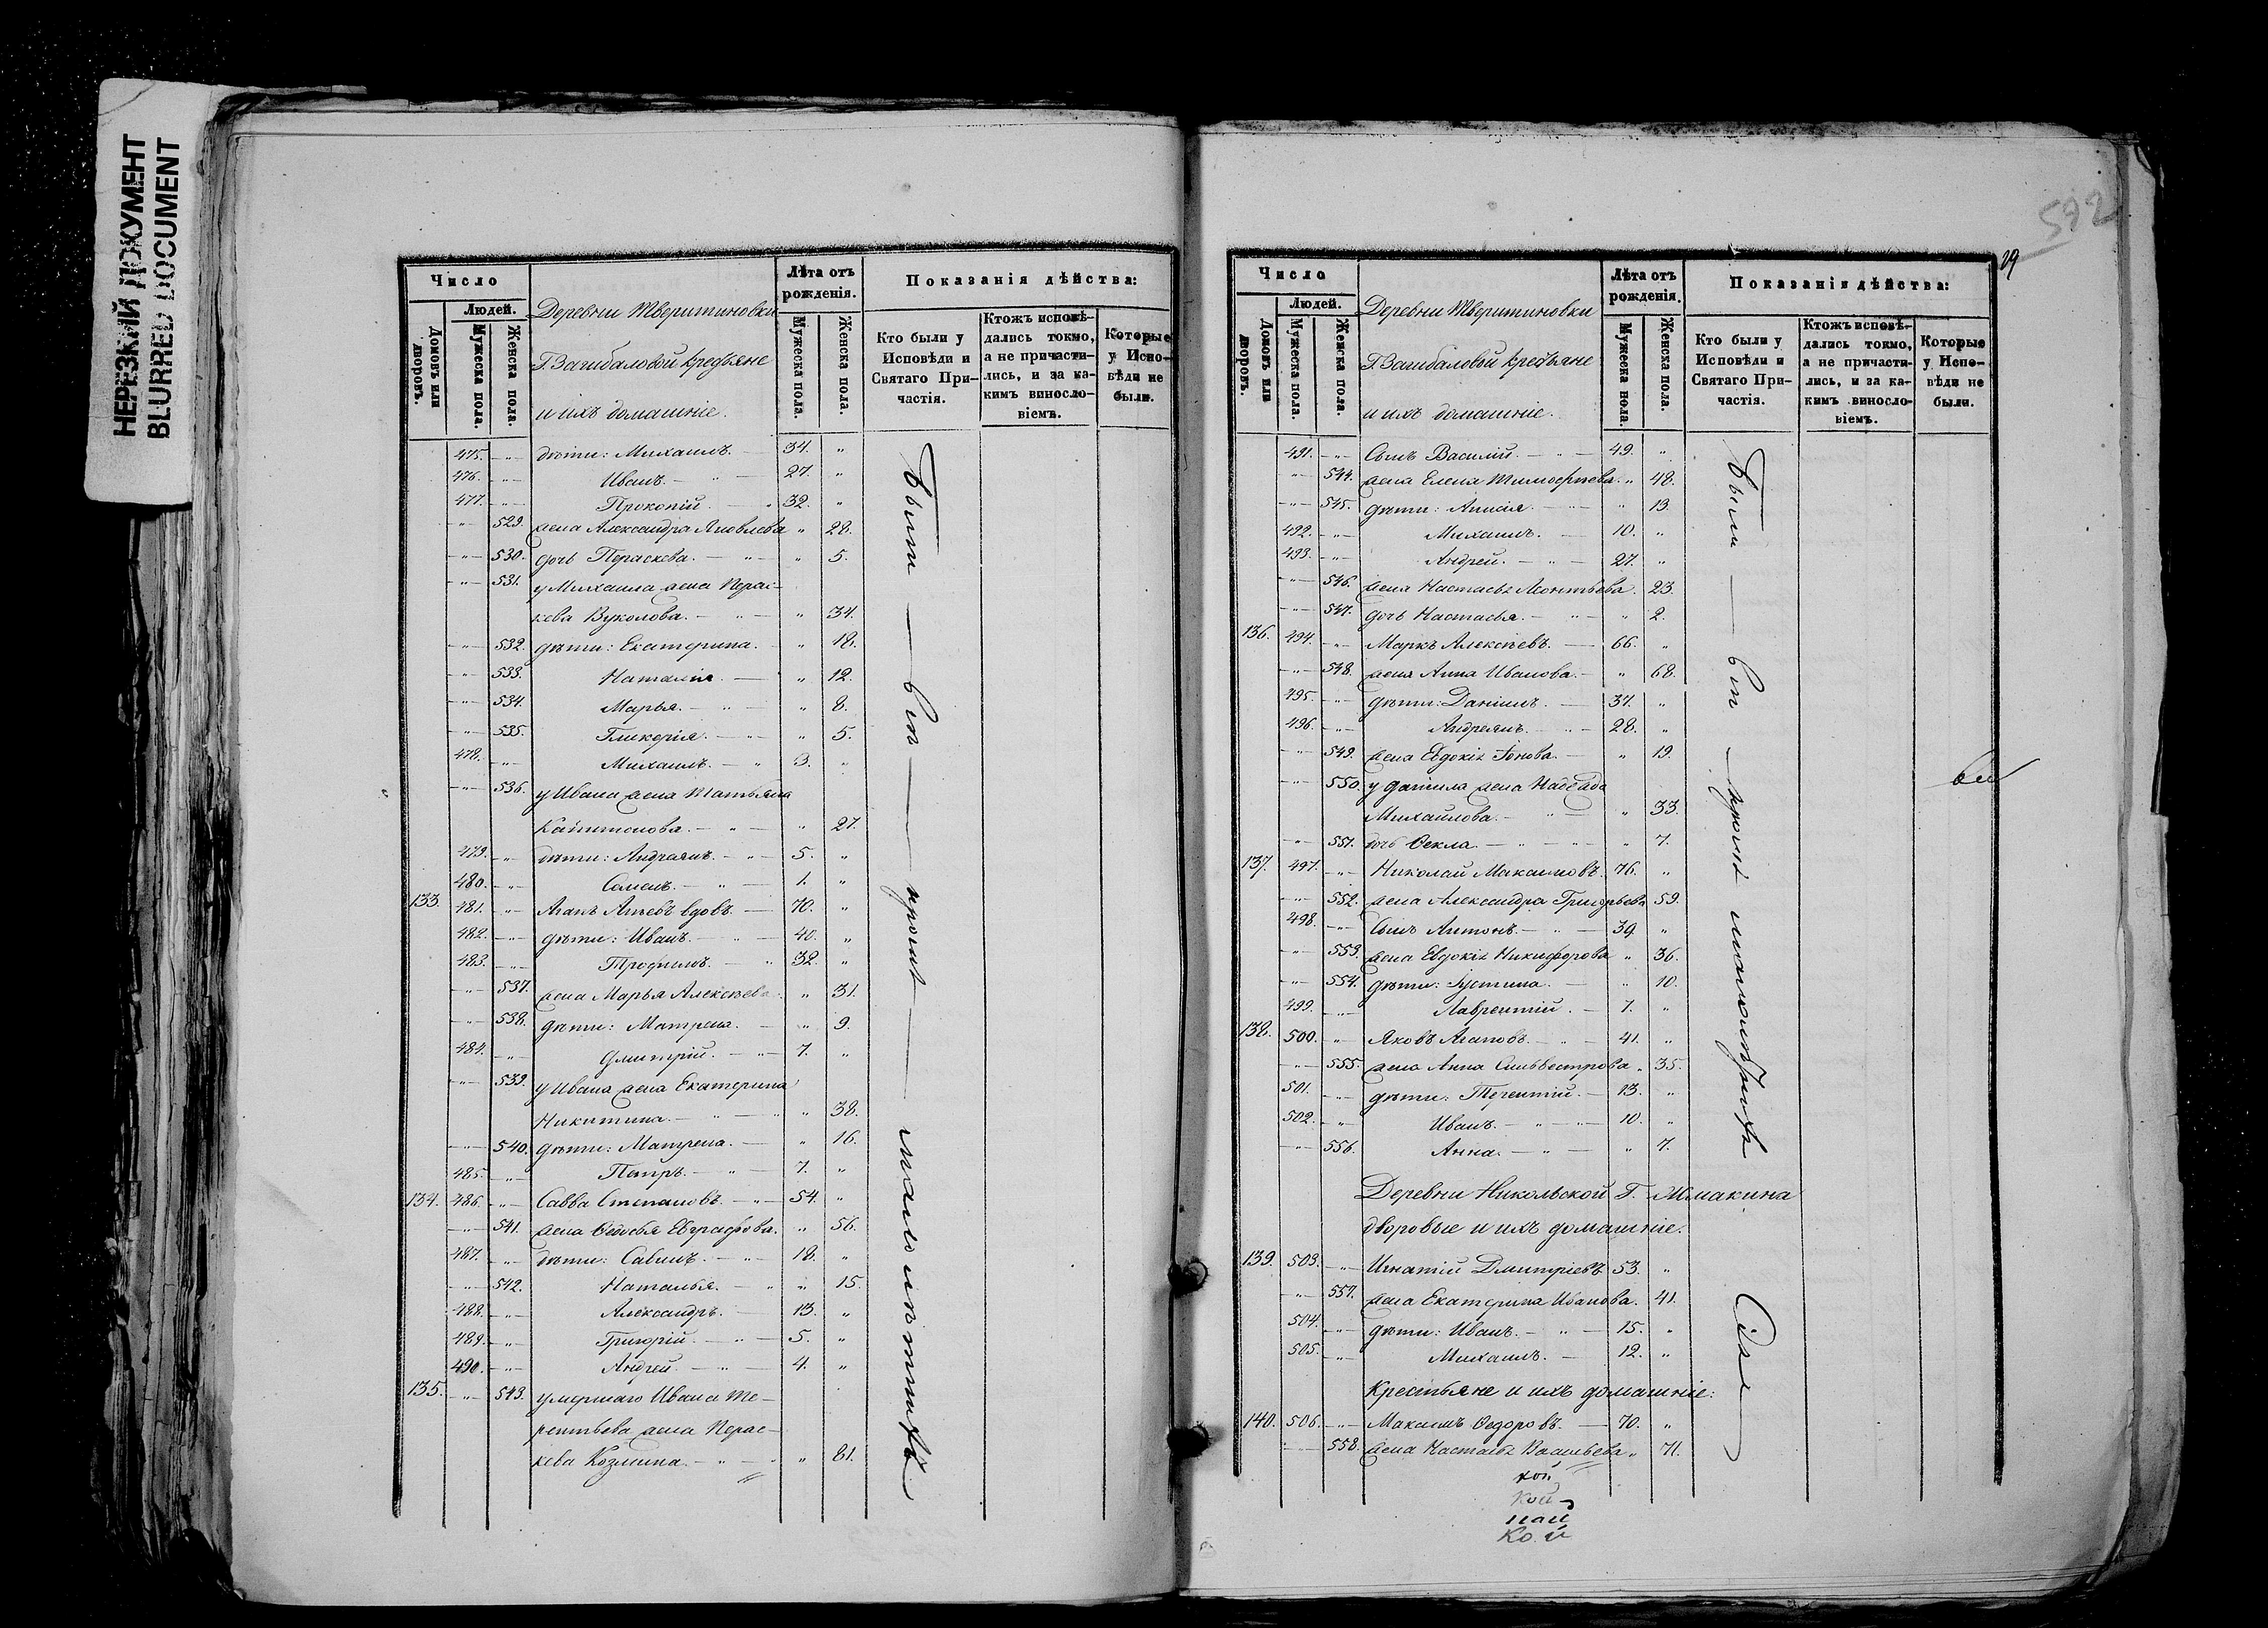 НЕРЕЗКИЙ ДОКУМЕНТ
BLURRED DOCUMENT
Число
Людей.
Домовъ или дворовъ.
Мужеска пола.
Женска пола.
Деревни Тверитиновки
Г. Загибаловой крестьяне
и ихъ домашніе.
Лѣта отъ рожденія.
Мужеска пола.
Женска пола.
Показанія дѣйства:
Кто были у Исповѣди и Святаго Причастія.
Ктожъ исповѣдались токмо, а не причастились, и за какимъ винословіемъ.
Которые у Исповѣди не были.
475. дѣти: Михаилъ. 34.
476. Иванъ. 27.
477. Прокопій. 32.
529. жена Александра Яковлева 28.
530. дочь Пераскева. 5.
531. у Михаила жена Перас-
кева Вуколова. 34.
532. дѣти: Екатерина. 18.
533. Наталія. 12.
534. Марья. 8.
535. Гликерія. 5.
478. Михаилъ. 3.
536. у Ивана жена Татьяна
Капитонова. 27.
479. дѣти: Андреянъ. 5.
480. Семенъ. 1.
133. 481. вдовъ. 70.
482. дѣти: Иванъ. 40.
483. Трофимъ. 32.
537. жена Марья Алексѣева 31.
538. дѣти: Матрена. 9.
484. Дмитрій. 7.
539. у Ивана жена Екатерина
Никитина. 38.
540. дѣти: Матрена. 16.
485. Петръ. 7.
134. 486. Савва Степановъ. 54.
541. жена Ѳедосья Евграфова. 56.
487. дѣти: Савинъ. 18.
542. Наталья. 15.
488. Александръ. 13.
489. Григорій. 5.
490. Андрей. 4.
135. 543. умершаго Ивана Те-
рентьева жена Перас-
кева Козмина. 81.
Были всѣ кромѣ малолѣтнихъ
592
29
Число
Людей.
Домовъ или дворовъ.
Мужеска пола.
Женска пола.
Деревни Тверитиновки
Г. Загибаловой крестьяне
и ихъ домашніе.
Лѣта отъ рожденія.
Мужеска пола.
Женска пола.
Показанія дѣйства:
Кто были у Исповѣди и Святаго Причастія.
Ктожъ исповѣдались токмо, а не причастились, и за какимъ винословіемъ.
Которые у Исповѣди не были.
491. Сынъ Василій. 49.
544. жена Елена Тимофѣева. 48.
545. дѣти: Анисія. 13.
492. Михаилъ. 10.
493. Андрей. 27.
546. жена Настасья Леонтьева. 23.
547. дочь Настасья. 2.
136. 494. Маркъ Алексѣевъ. 66.
548. жена Анна Иванова. 68.
495. дѣти: Даніилъ. 34.
496. Андреянъ. 28.
549. жена Евдокія Іонова. 19.
550. у Даніила жена
Михайлова. 33.
551. дочь Ѳекла. 7.
137. 497. Николай Максимовъ. 76.
552. жена Александра Григорьева 59.
498. Сынъ Антонъ. 39.
553. жена Евдокія Никифорова 36.
554. дѣти: Іустина. 10.
499. Лаврентій. 7.
138. 500. Яковъ Агаповъ. 41.
555. жена Анна Сильвестрова. 35.
501. дѣти: Терентій. 13.
502. Иванъ. 10.
556. Анна. 7.
Деревни Никольской Г. Жмакина
дворовые и ихъ домашніе.
139. 503. Игнатій Дмитріевъ 53.
557. жена Екатерина Иванова. 41.
504. дѣти: Иванъ. 15.
505. Михаилъ. 12.
Крестьяне и ихъ домашніе:
140. 506. Максимъ Ѳедоровъ. 70.
558. жена Настасья Васильева 71.
Были всѣ кромѣ малолѣтнихъ
кой
кой